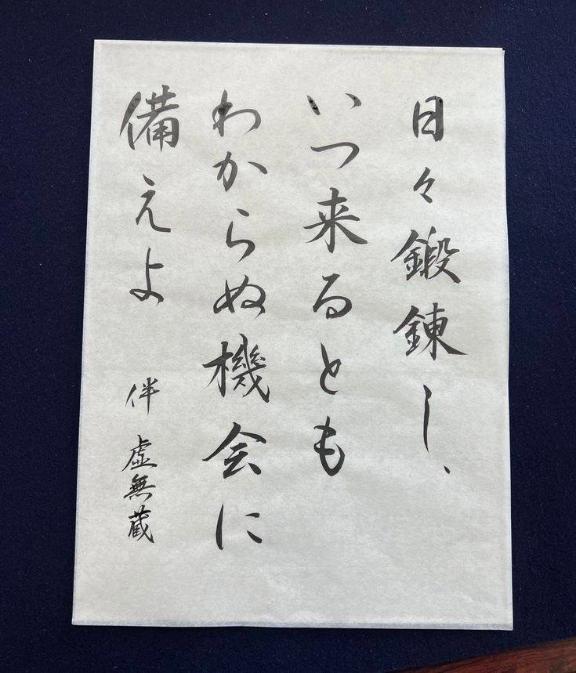 日々鍛錬し、
いつ来るとも
わからぬ機会に
備えよ
伴 虚無蔵